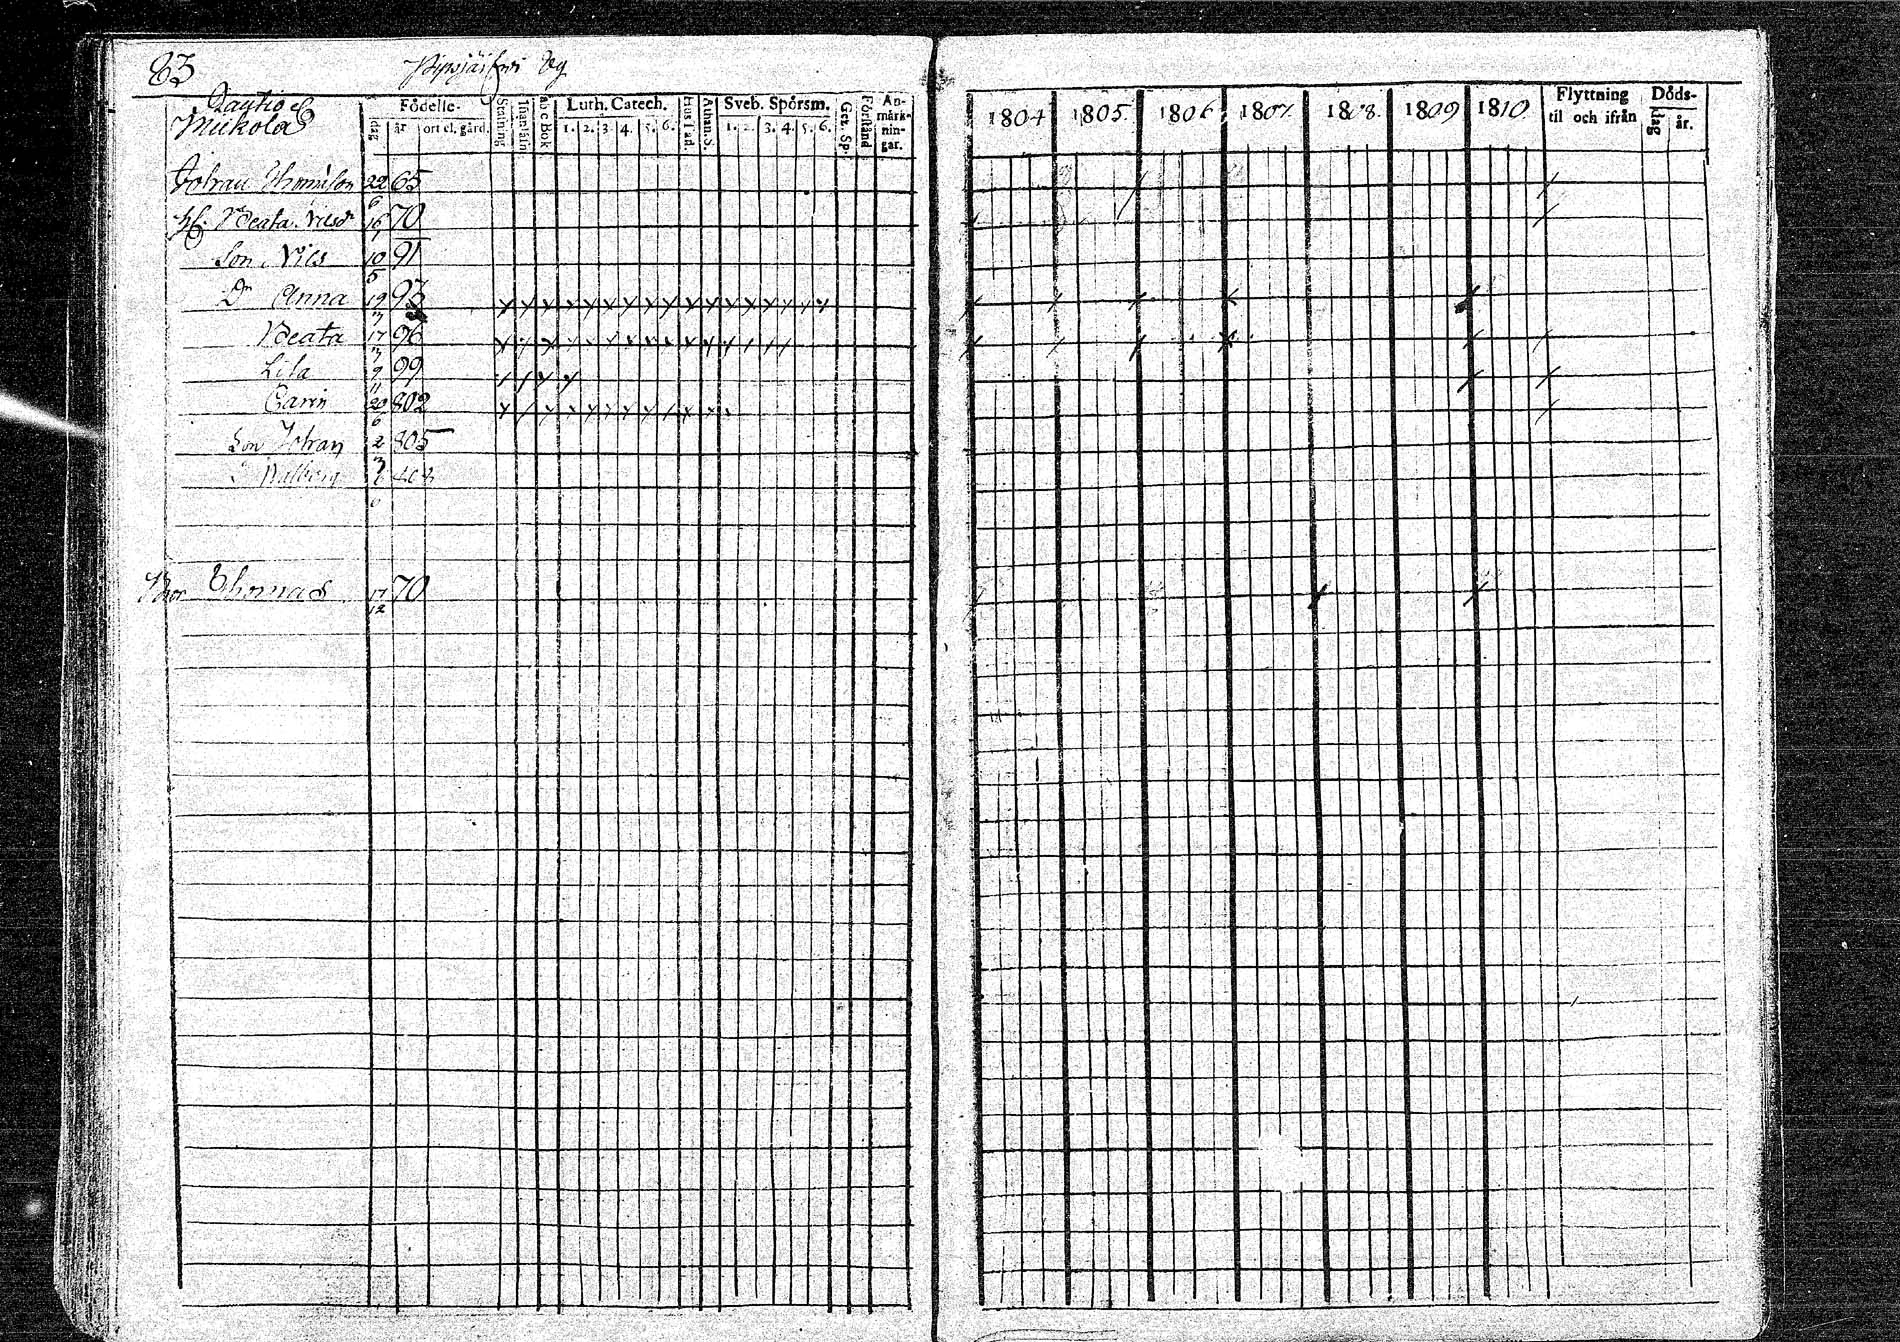 83 Pyhäjärvi by
Rautio &
Mickola
Födelse-
dag år ort el. gård.
Stafning
Innanläsn.
a b c Bok
Luth. Catech.
1. 2. 3. 4. 5. 6.
Hus Tafl.
Athan. S.
Sveb. Spörsm.
1. 2. 3. 4. 5. 6.
Gez. Sp.
Förstånd
An-
märk-
nin-
gar.
1804 1805. 1806. 1807. 1808. 1809 1810.
Flyttning
til och ifrån
Döds-
dag år.
Johan Thomisson 22/6 65
H. Beata Nilsdr 16 70
Son Nils 10/5 91
Dr Anna 19/3 93
Beata 17/3 96
Lisa 9/11 99
Carin 20/6 802
Son Johan 2/3 805
Walborg
Bror Thomas 17/12 70